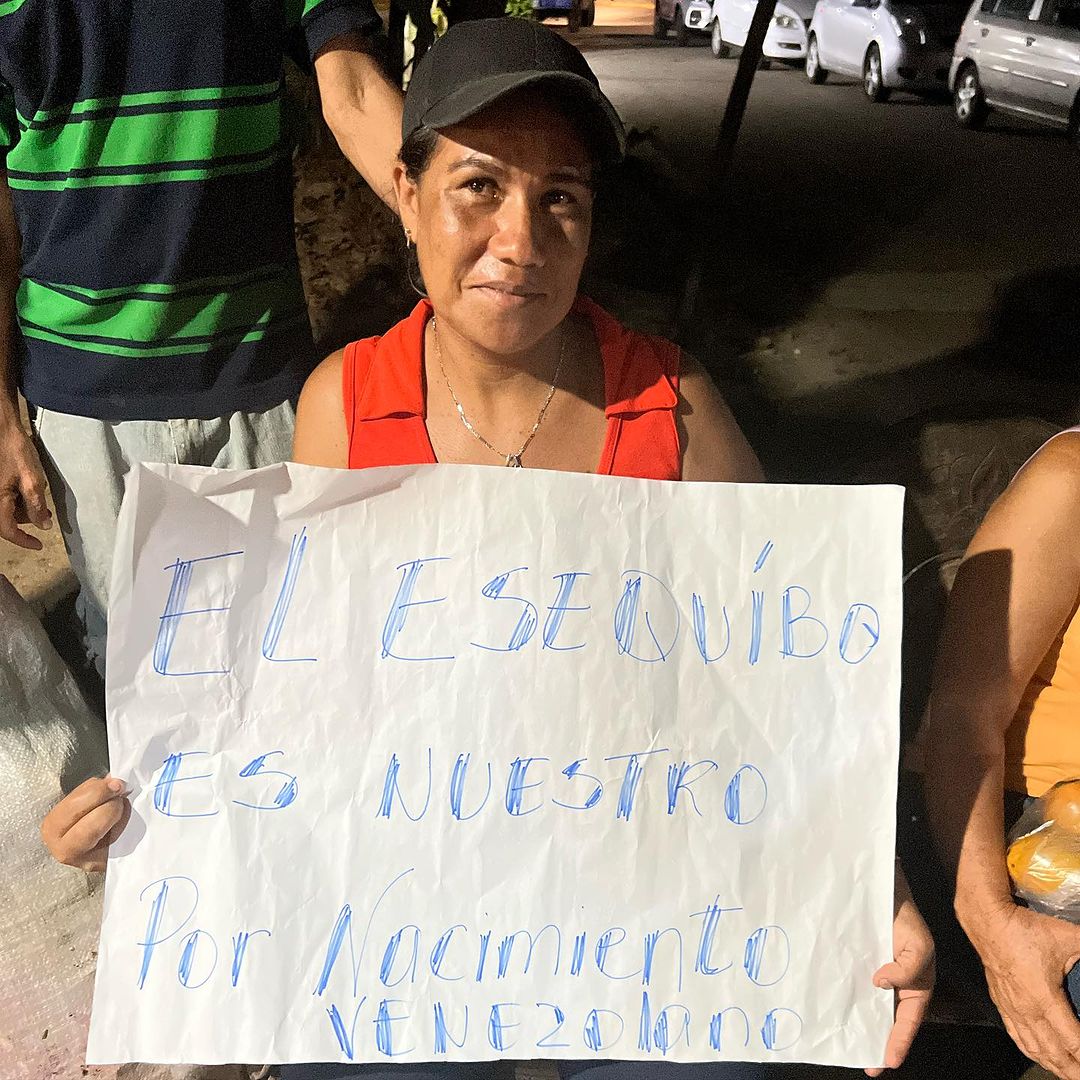 EL ESEQUÍBO
ES NUESTRO
Por Nacimiento
VENEZolano